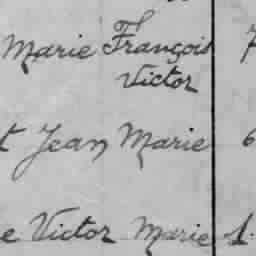 Marie François 7
Victor
t Jean Marie 6
e Victor Marie 1.